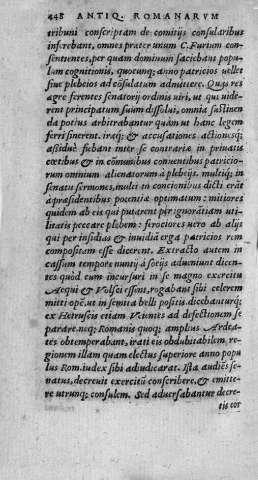 448 ANTIQ. ROMANARVM
tribuni conscriptam de comitijs consularibus
inserebant, omnes præter unum C. Furium con-
sentientes, per quam dominum faciebant popu-
lum cognitionis, quocunq; anno patricios uellet
siue plebeios ad cōsulatum admittere. Quas res
ægre ferentes senatorij ordinis uiri, ut qui uide-
rent principatum suum dissolui, omnia sustinen
da potius arbitrabantur quàm ut hanc legem
ferri sinerent. iraq; & accusationes actionesq;
assiduè fiebant inter se contrariæ in priuatis
cœtibus & in cōmunibus conuentibus patricio-
rum omnium alienatorum à plebeijs. multiq; in
senatu sermones, multi in concionibus dicti erāt
à præsidentibus potentiæ optimatum: mitiores
quidem ab eis qui putarent p̱ ignorātiam uti-
litatis peccare plebem: ferociores uero ab alijs
qui per insidias & inuidiā erga patricios rem
compositam esse dicerent. Extracto autem in
cassum tempore nuntij à socijs adueniunt dicen-
tes quòd cum incursuri in se magno exercitu
Aequi & Volsci essent, rogabant sibi celerem
mitti opē, ut in semita belli positis. dicebanturq;
ex Hetruscis etiam Veientes ad defectionem se
parare. neq; Romanis quoq; amplius Ardea-
tes obtemperabant, irati eis ob dubitabilem re-
gionem illam quam electus superiore anno popu
lus Rom. iudex sibi adiudicarat. Ista audiēs se-
natus, decreuit exercitū conscribere, & emitte-
re utrunq; consulem. Sed aduersabantur decre-
tis eor